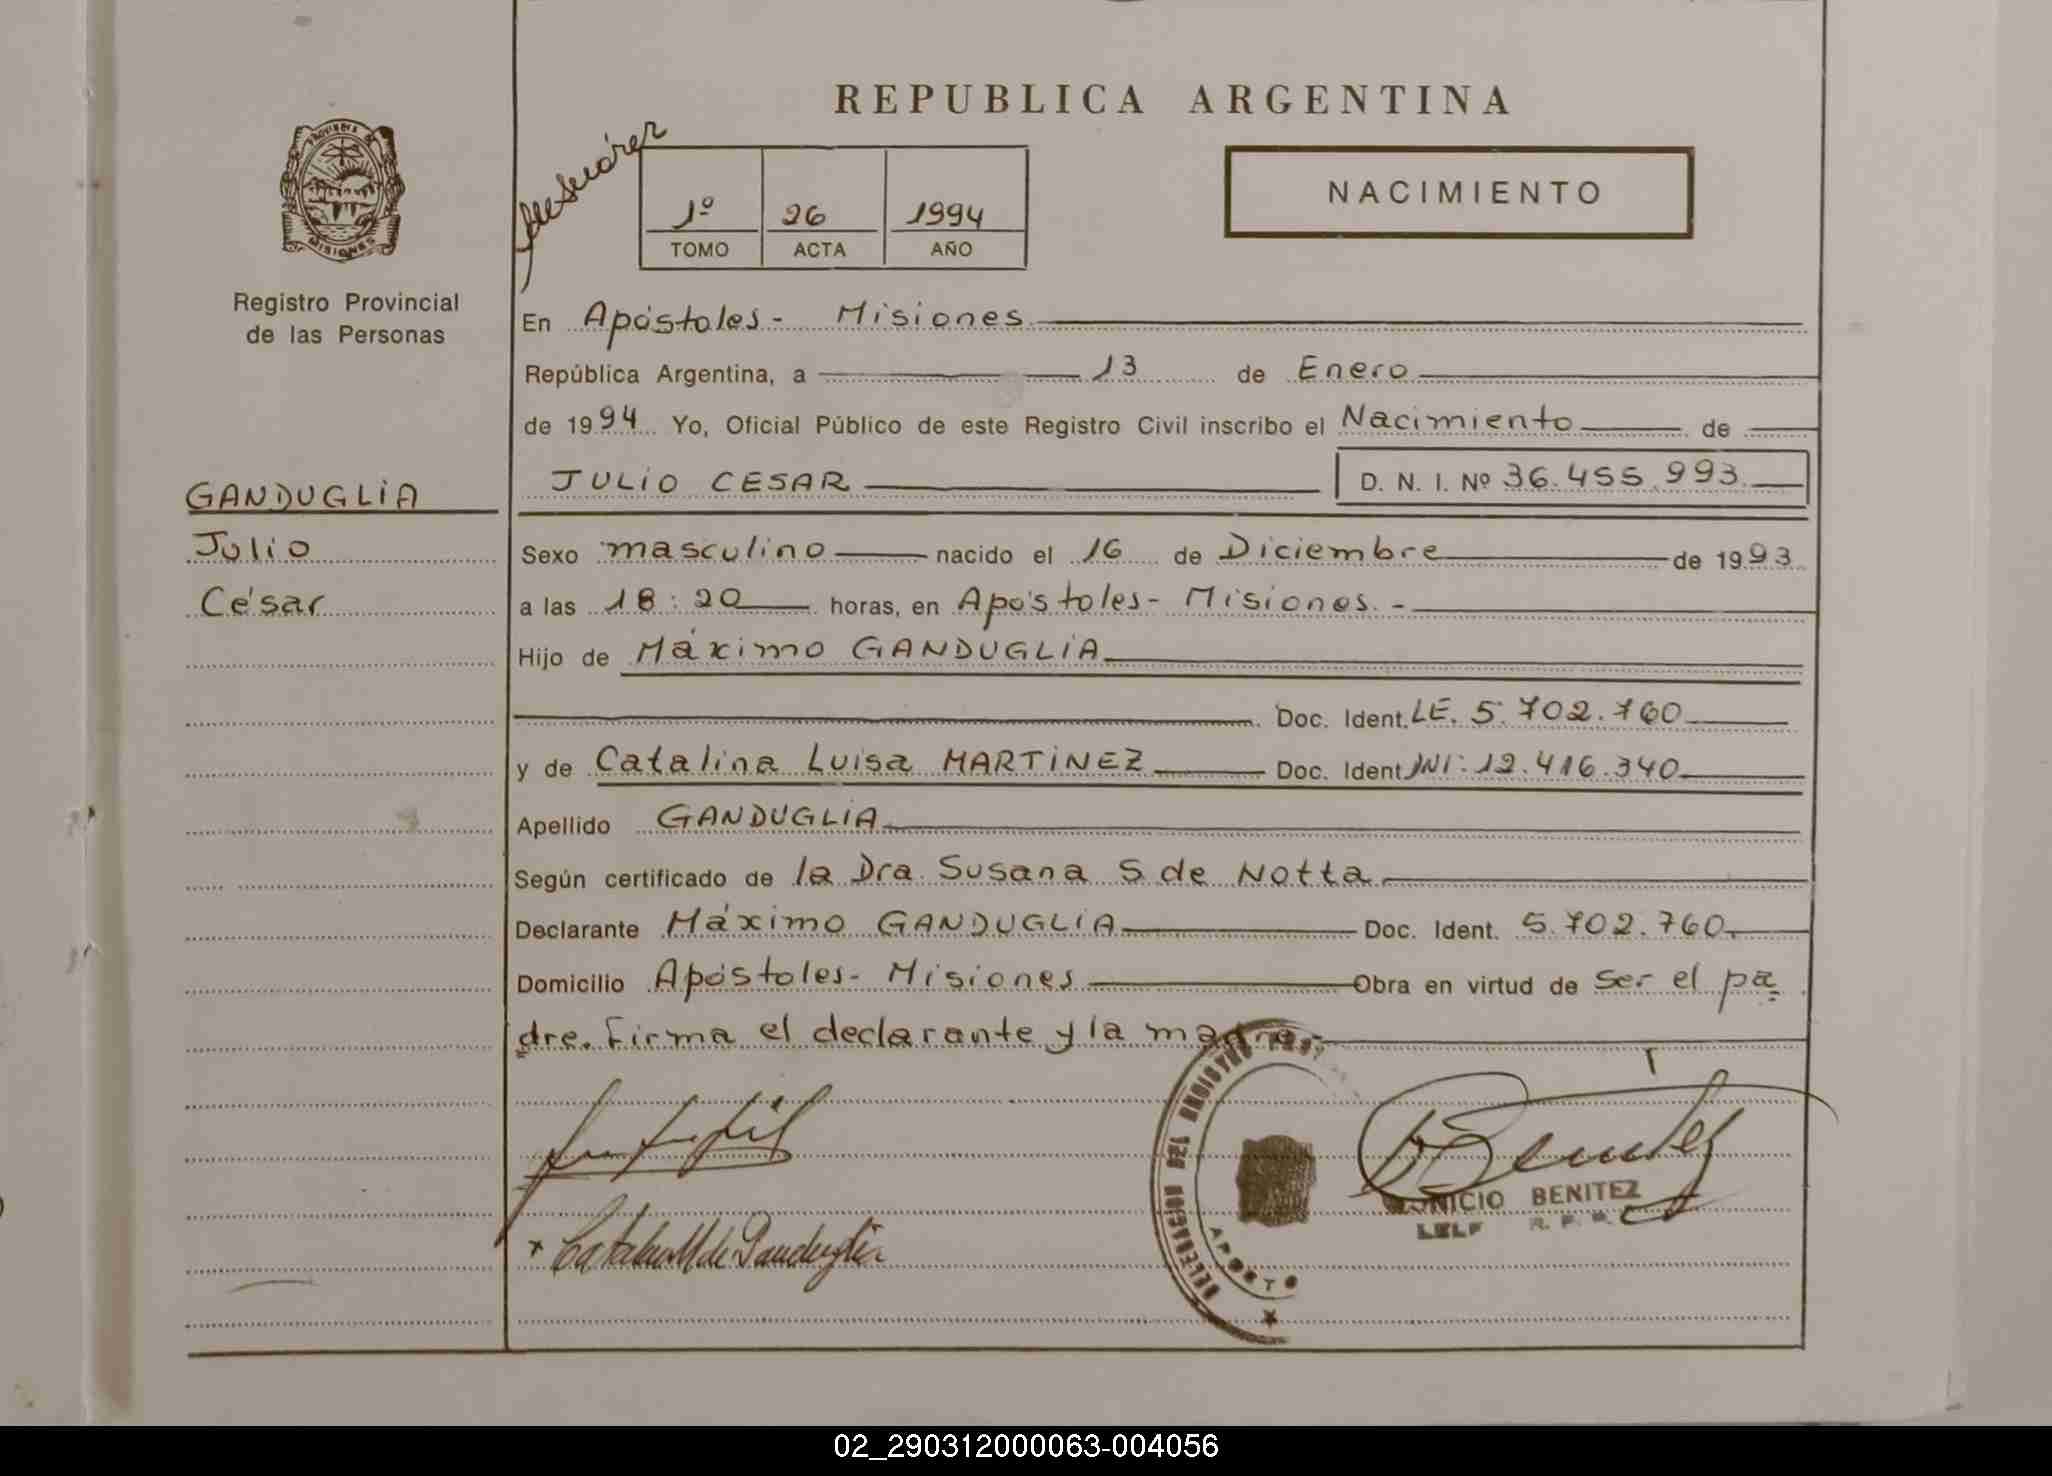 REPUBLICA ARGENTINA
PROVINCIA DE
MISIONES
Registro Provincial
de las Personas
1º 26 1994
TOMO ACTA AÑO
NACIMIENTO
En Apóstoles - Misiones
República Argentina, a 13 de Enero
de 1994 Yo, Oficial Público de este Registro Civil inscribo el Nacimiento de
JULIO CESAR D. N. I. Nº 36.455.993
GANDUGLIA
Julio
César
Sexo masculino nacido el 16 de Diciembre de 1993
a las 18:20 horas, en Apóstoles - Misiones. -
Hijo de Máximo GANDUGLIA
Doc. Ident. LE. 5.702.760
y de Catalina Luisa MARTINEZ Doc. Ident DNI: 12.416.340
Apellido GANDUGLIA
Según certificado de la Dra. Susana S de Notta
Declarante Máximo GANDUGLIA Doc. Ident. 5.702.760
Domicilio Apóstoles - Misiones Obra en virtud de ser el pa
dre. Firma el declarante y la madre -
DELEGACION DEL REGISTRO
Catalina M de Ganduglia
BENITEZ
02_290312000063-004056